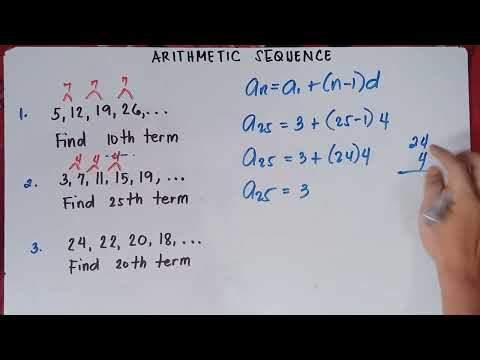 ARITHMETIC SEQUENCE
7 7 7
1. 5, 12, 19, 26, ...
Find 10th term
4 4 4
2. 3, 7, 11, 15, 19, ...
Find 25th term
3. 24, 22, 20, 18, ...
Find 20th term
aₙ = a₁ + (n-1)d
a₂₅ = 3 + (25-1) 4
a₂₅ = 3 + (24) 4
a₂₅ = 3
24
4